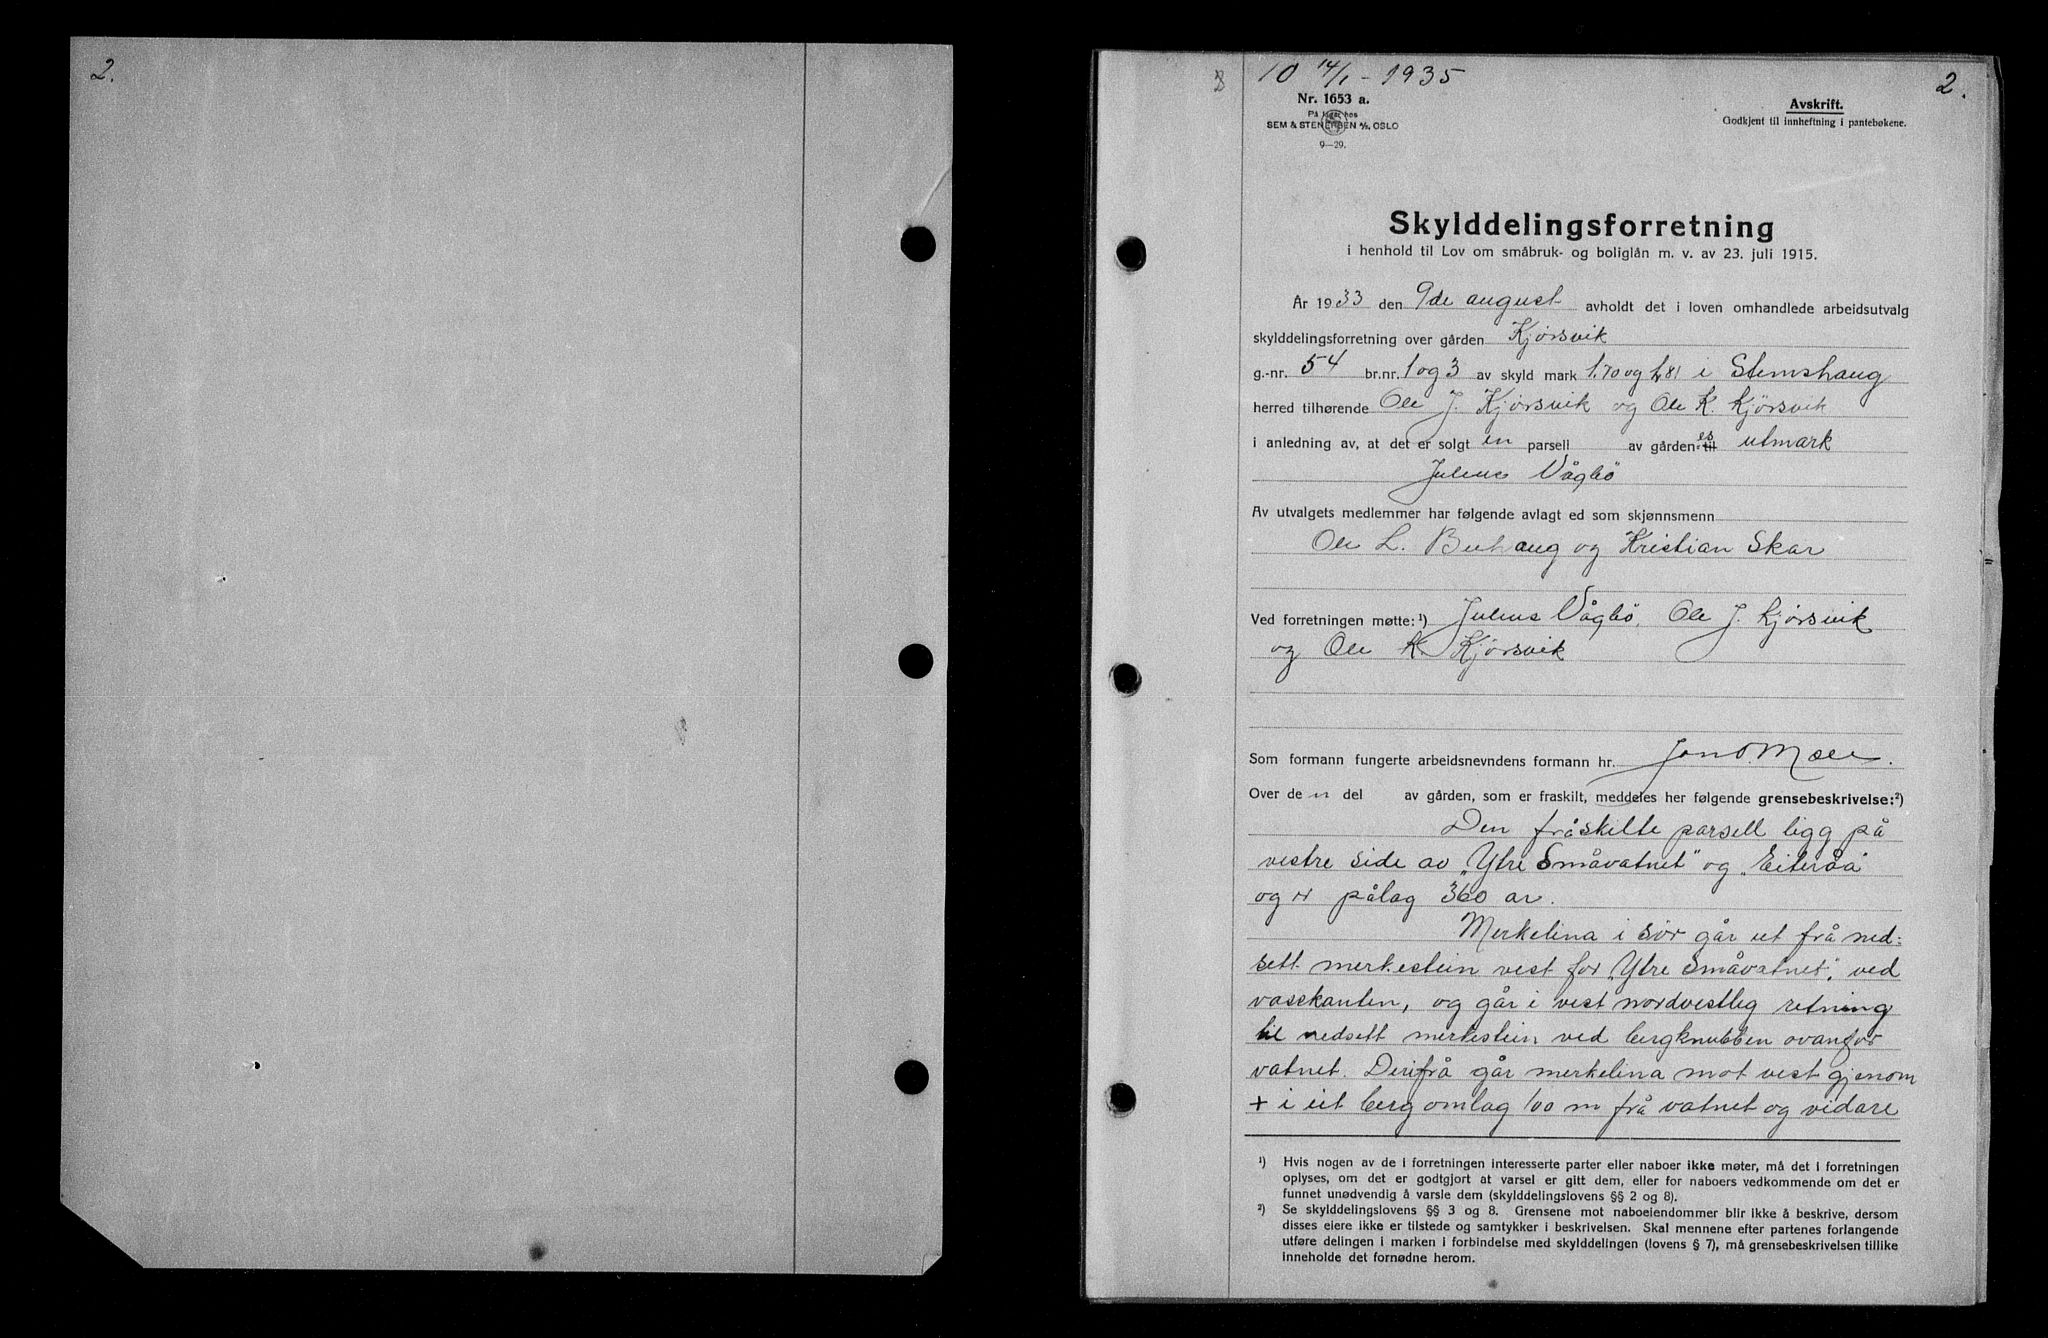 2.
10 14/1 - 1935
2.
Nr. 1653 a.
På lager hos
SEM & STENERSEN A/S, OSLO
9—29.
Avskrift.
Godkjent til innheftning i pantebøkene.
Skylddelingsforretning
i henhold til Lov om småbruk- og boliglån m. v. av 23. juli 1915.
År 1933 den 9de august avholdt det i loven omhandlede arbeidsutvalg
skylddelingsforretning over gården Kjørsvik
g.-nr. 54 br.nr. 1 og 3 av skyld mark 1.70 og 1,81 i Stemshaug
herred tilhørende Ole J. Kjørsvik og Ole K. Kjørsvik
i anledning av, at det er solgt en parsell av gården es til utmark
Julius Vågbø
Av utvalgets medlemmer har følgende avlagt ed som skjønnsmenn
Ole L. Buhaug og Kristian Skar
Ved forretningen møtte:¹) Julius Vågbø, Ole J. Kjørsvik
og Ole K. Kjørsvik
Som formann fungerte arbeidsnevndens formann hr. Jon O. Mæle.
Over de n del av gården, som er fraskilt, meddeles her følgende grensebeskrivelse:²)
Den fråskilte parsell ligg på
vestre side av "Ytre Småvatnet" og "Eiteråa"
og er pålag 360 ar.
Merkelina i sør går ut frå ned-
sett merkestein vest for "Ytre Småvatnet", ved
vasskanten, og går i vest nordvestleg retning
til nedsett merkestein ved bergknubben ovanfor
vatnet. Derifrå går merkelina mot vest gjenom
+ i eit berg omlag 100 m frå vatnet og vidare
¹) Hvis nogen av de i forretningen interesserte parter eller naboer ikke møter, må det i forretningen
oplyses, om det er godtgjort at varsel er gitt dem, eller for naboers vedkommende om det er
funnet unødvendig å varsle dem (skylddelingslovens §§ 2 og 8).
²) Se skylddelingslovens §§ 3 og 8. Grensene mot naboeiendommer blir ikke å beskrive, dersom
disses eiere ikke er tilstede og samtykker i beskrivelsen. Skal mennene efter partenes forlangende
utføre delingen i marken i forbindelse med skylddelingen (lovens § 7), må grensebeskrivelsen tillike
inneholde det fornødne herom.